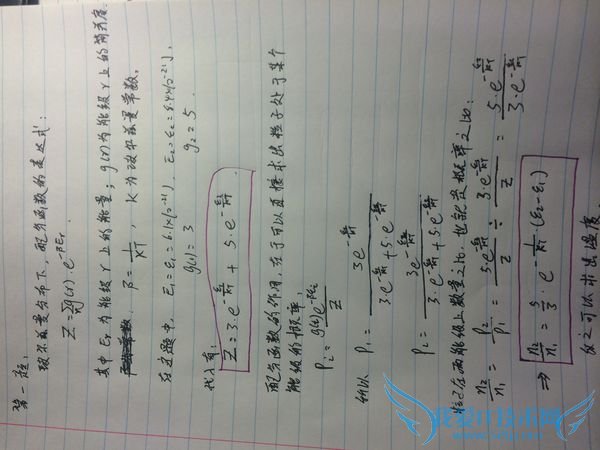 第一题,
玻尔兹曼分布下, 配分函数的表达式:
Z = Σ g(r)·e^{-βEr}
其中 Er 为能级 r 上的能量; g(r)为能级 r 上的简并度.
β = 1/kT, k 为玻尔兹曼常数.
在本题中, E1 = ε1 = 6.1×10^{-21}, E2 = ε2 = 8.4×10^{-21},
g(1) = 3 g2 = 5.
代入有:
Z = 3·e^{-ε1/kT} + 5·e^{-ε2/kT}
配分函数的作用, 在于可以直接求出粒子处于某个
能级的概率,
Pi = g(i)e^{-βεi}/Z
所以 P1 = 3e^{-ε1/kT}/(3·e^{-ε1/kT}+5·e^{-ε2/kT})
P2 = 3e^{-ε2/kT}/(3·e^{-ε1/kT}+5·e^{-ε2/kT})
粒子在两能级上数量之比, 也就是概率之比:
n2/n1 = P2/P1 = 5·e^{-ε2/kT}/Z ÷ 3e^{-ε1/kT}/Z = 5·e^{-ε2/kT}/3·e^{-ε1/kT}
⇒ n2/n1 = 5/3·e^{-1/kT(ε2-ε1)}
反之可以求出温度.